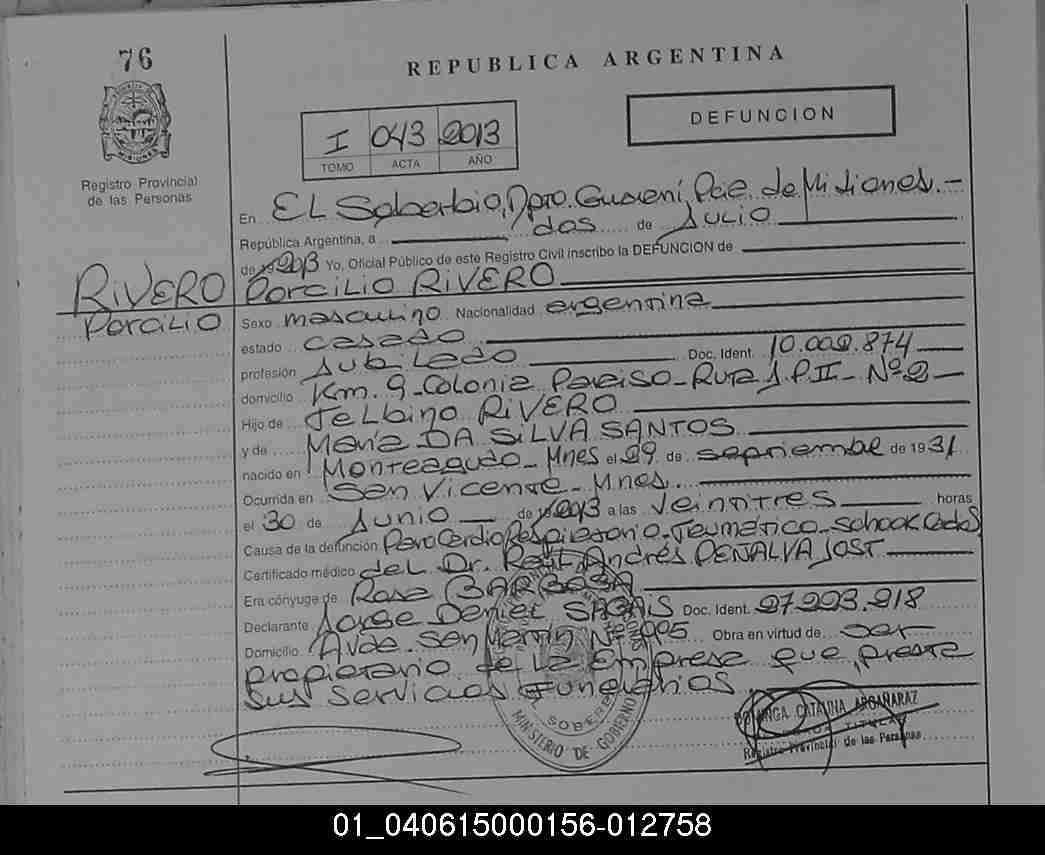 76
REPUBLICA ARGENTINA
DEFUNCION
I 043 2013
TOMO ACTA AÑO
MISIONES
Registro Provincial
de las Personas
En EL Soberbio, Dpto. Guaraní, Pcia. de Misiones.-
República Argentina, a dos de Julio
de 19 2013 Yo, Oficial Público de este Registro Civil inscribo la DEFUNCION de
RIVERO Porcilio RIVERO
Porcilio Sexo masculino Nacionalidad argentina
estado casado
profesión Jubilado Doc. Ident. 10.002.874
domicilio Km. 9 - Colonia Paraiso - Ruta J.P.II - Nº 2
Hijo de Jelbino RIVERO
y de María DA SILVA SANTOS
nacido en Monteagudo - Mnes el 29 de septiembre de 1931
Ocurrida en San Vicente - Mnes.
el 30 de Junio de 19 2013 a las veintitres horas
Causa de la defunción Paro Cardio Respiratorio - Traumático - schook
Certificado médico del Dr. Raúl Andrés PEÑALVA JOST
Era cónyuge de Rosa BARBOSA
Declarante Jorge Daniel Doc. Ident. 27.223.218
Domicilio Avda. San Martín Nº Obra en virtud de ser
propietario de la Empresa que presta
sus servicios funerarios
SOBERBIO
MINISTERIO DE GOBIERNO
CATALINA ARGAÑARAZ
TITULAR
Registro Provincial de las Personas
01_040615000156-012758